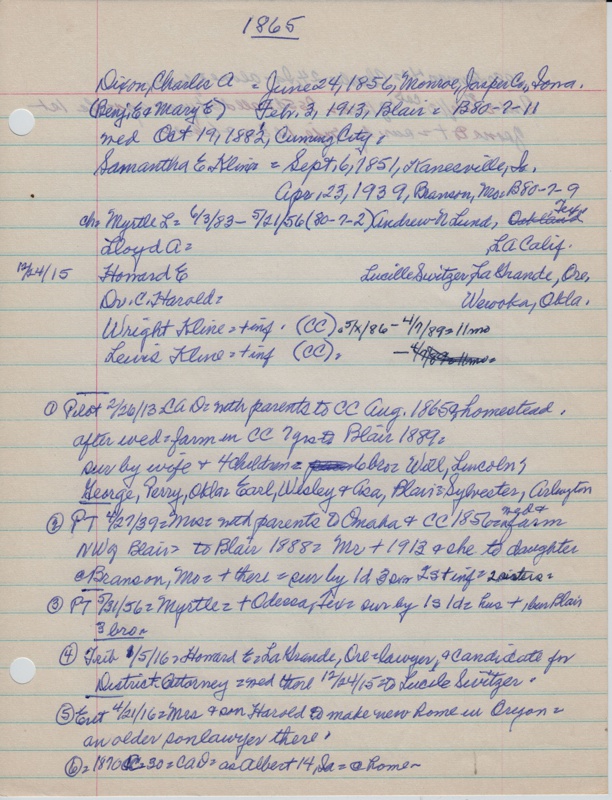 1865
Dixon, Charles A = June 24, 1856, Monroe, Jasper Co, Iowa.
(Benj. E & Mary E) Feb. 3, 1913, Blair = B80-7-11
wed Oct 19, 1882, Cuming City.
Samantha E. Kline = Sept. 6, 1851, Kanesville, Ia.
Apr. 23, 1939, Branson, Mo. B80-7-9
ch= Myrtle L = 6/3/83 - 5/21/56 (80-7-2) Andrew N Lund, Tex
Lloyd A = LA Calif.
12/24/15 Howard E Lucille Switzer, La Grande, Ore,
Dr. C. Harold = Wewoka, Okla.
Wright Kline = + inf. (CC) 5/x/86 - 4/7/89 = 11 mo
Lewis Kline = + inf (CC) =
① Pilot 2/26/13 C A D = with parents to CC Aug. 1865 homestead.
after wed = farm in CC 7 yrs to Blair 1889 =
sur by wife & 4 children = 6 bro = Watl, Lincoln;
George, Perry, Okla = Earl, Wesley & Asa, Blair = Sylvester, Arlington
② PT 4/27/39 = Mrs = with parents to Omaha & CC 1856 = & farm
NW of Blair = to Blair 1888 = Mr + 1913 & she to daughter
Branson, Mo = + there = sur by 1d 3 son 2s + inf = 2 sisters =
③ PT 5/31/56 = Myrtle = + Odessa, Tex = sur by 1s 1d = hus +, bur Blair
3 bro -
④ Trib 1/5/16 = Howard E = La Grande, Ore = lawyer, & candidate for
District Attorney = wed there 12/24/15 = to Lucile Switzer.
⑤ Ent 4/21/16 = Mrs & son Harold to make new home in Oregon =
an older son lawyer there.
⑥ = 1870 C = 30 = CAD = as Albert 14, Ia = @ home -